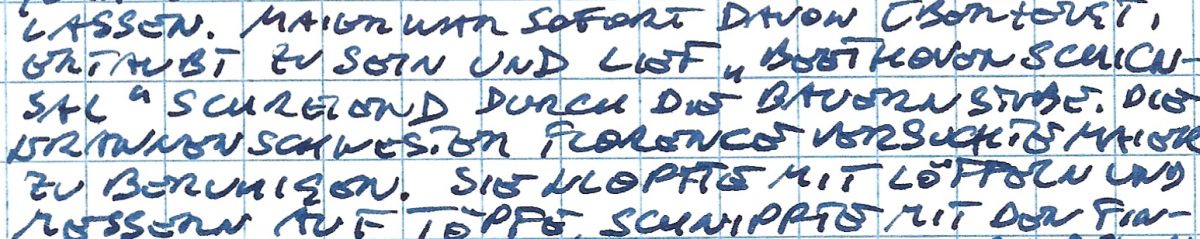 LASSEN. MAIER WAR SOFORT DAVON ÜBERZEUGT,
ERTAUBT ZU SEIN UND LIEF „BEETHOVENSCHICK-
SAL“ SCHREIEND DURCH DIE BAUERNSTUBE. DIE
KRANKENSCHWESTER FLORENCE VERSUCHTE MAIER
ZU BERUHIGEN. SIE KLOPFTE MIT LÖFFELN UND
MESSERN AUF TÖPFE, SCHNIPPTE MIT DEN FIN-